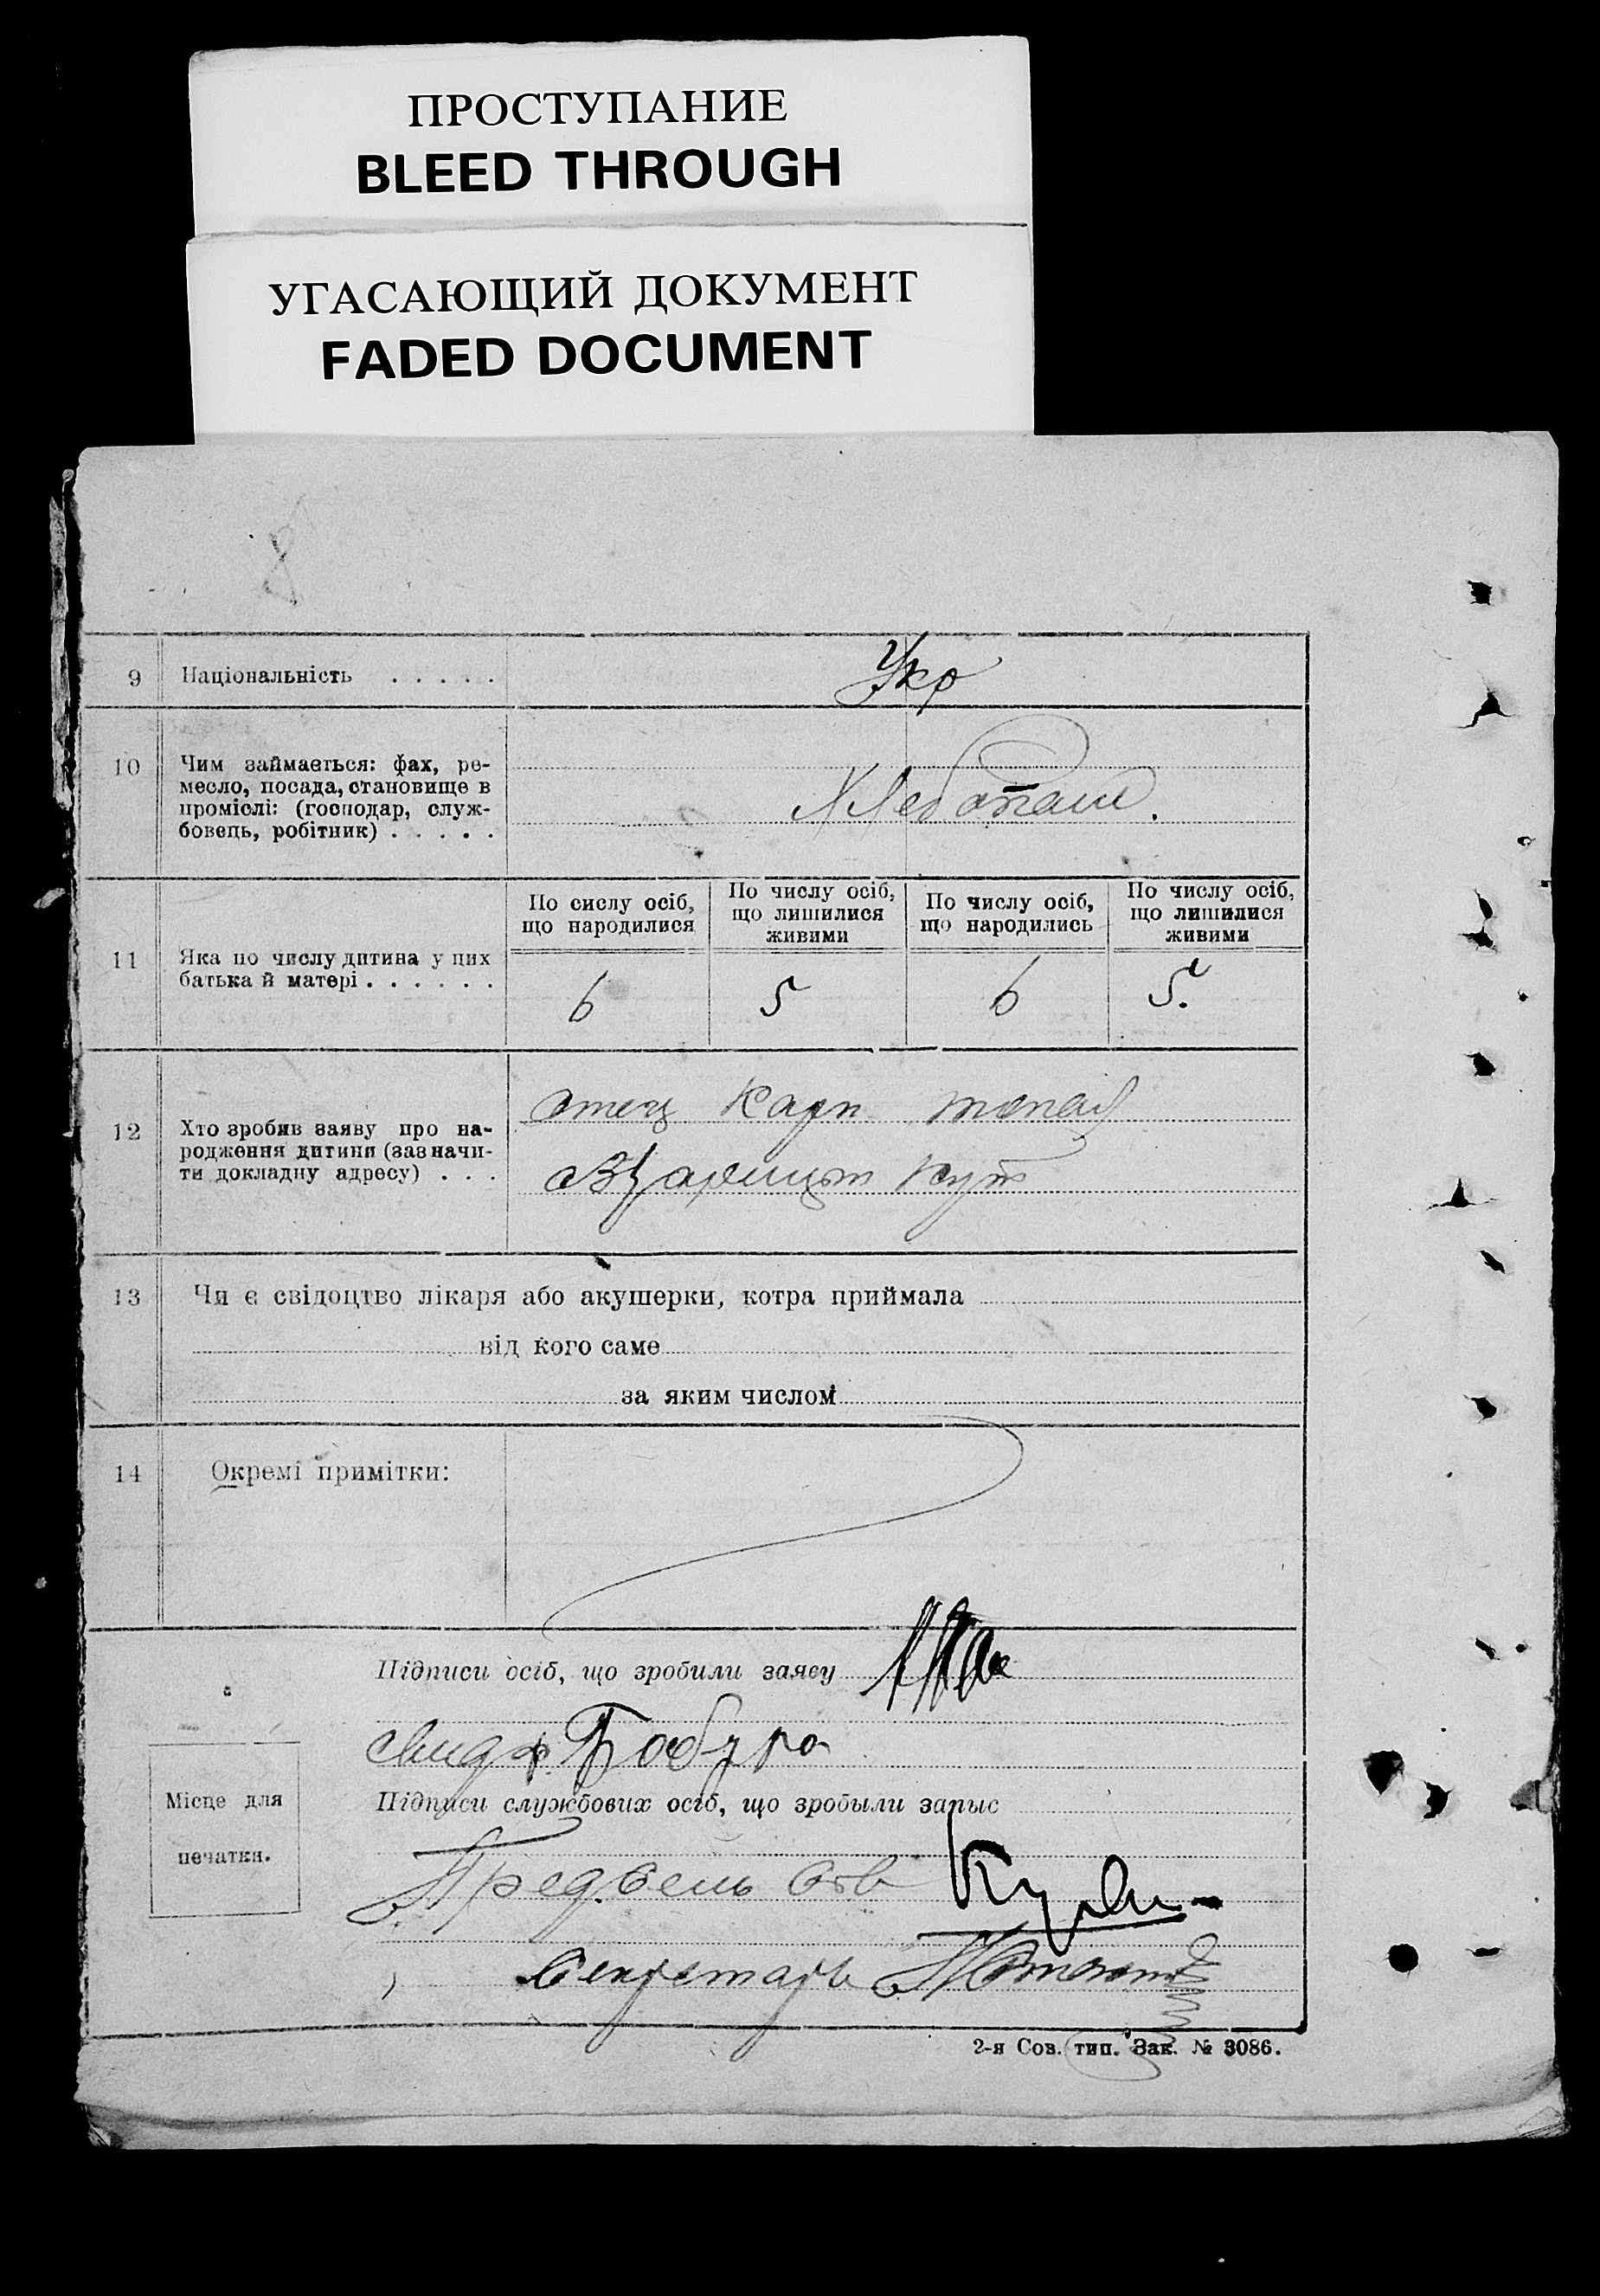 ПРОСТУПАНИЕ
BLEED THROUGH
УГАСАЮЩИЙ ДОКУМЕНТ
FADED DOCUMENT
8
9 Національність . . . . .
Укр
10 Чим займається: фах, ре-
месло, посада, становище в
проміслі: (господар, служ-
бовець, робітник) . . . . .
Хлебопаш.
11 Яка по числу дитина у цих
батька й матері . . . . . .
По сислу осіб,
що народилися
По числу осіб,
що лишилися
живими
По числу осіб,
що народились
По числу осіб,
що лишилися
живими
6 5 6 5.
12 Хто зробив заяву про на-
родження дитини (зазначи-
ти докладну адресу) . . .
отец Карп
Кут
13 Чи є свідоцтво лікаря або акушерки, котра приймала
від кого саме
за яким числом
14 Окремі примітки:
Підписи осіб, що зробили заяву
Бобуро
Підписи службових осіб, що зробыли запыс
Пред. Сель
Секретарь
Місце для
печатки.
2-я Сов. тип. Зак. № 3086.